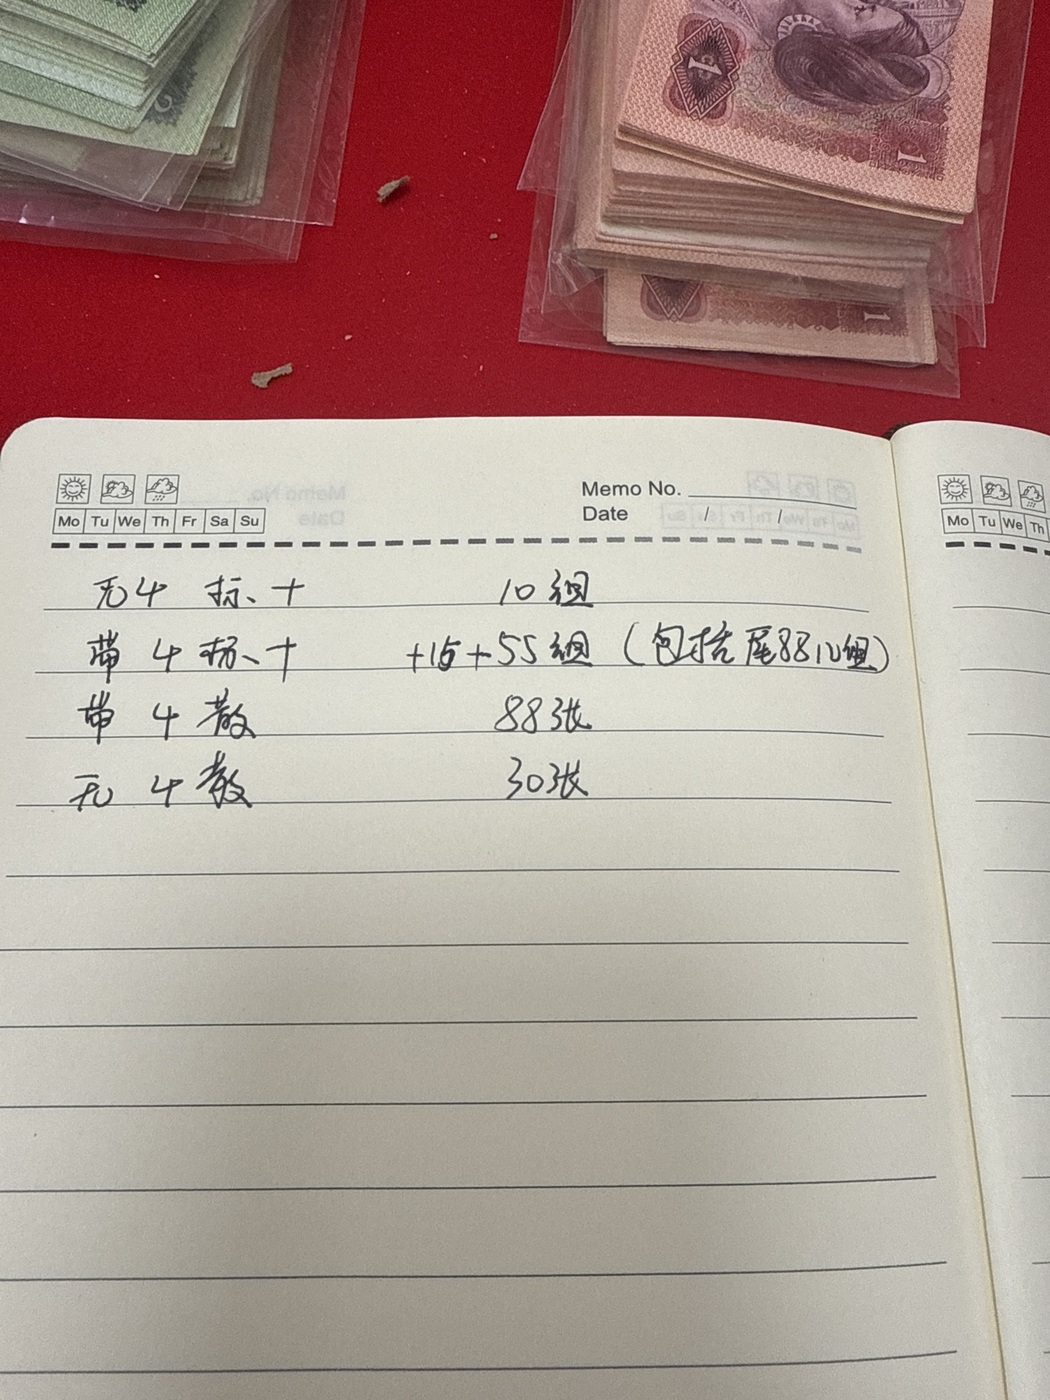 1
1
1
Memo No.
Date / /
Mo Tu We Th Fr Sa Su
Mo Tu We Th
无4 标十 10组
带4标十 +15+55组（包括尾88 10组）
带4散 88张
无4散 30张